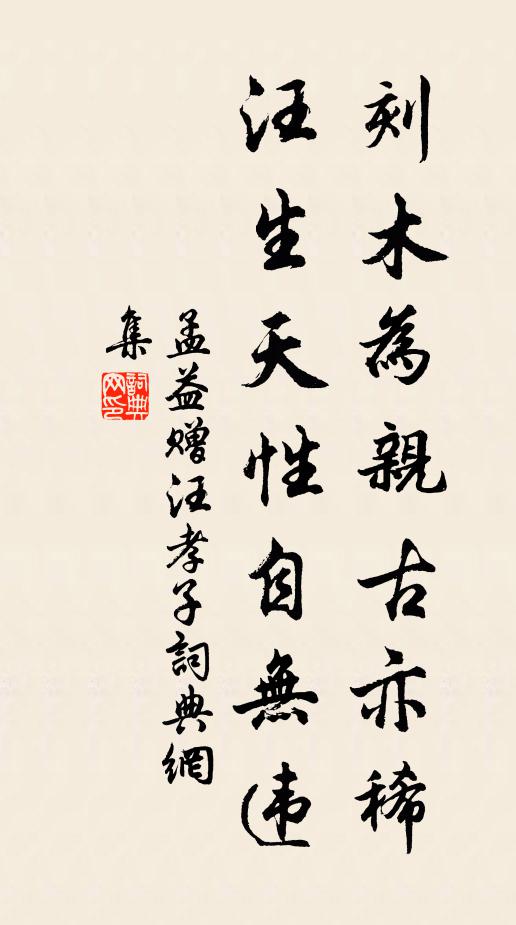 刻木為親古亦稀
汪生天性自無违
孟益贈汪孝子詞典網
集
詞典
网印